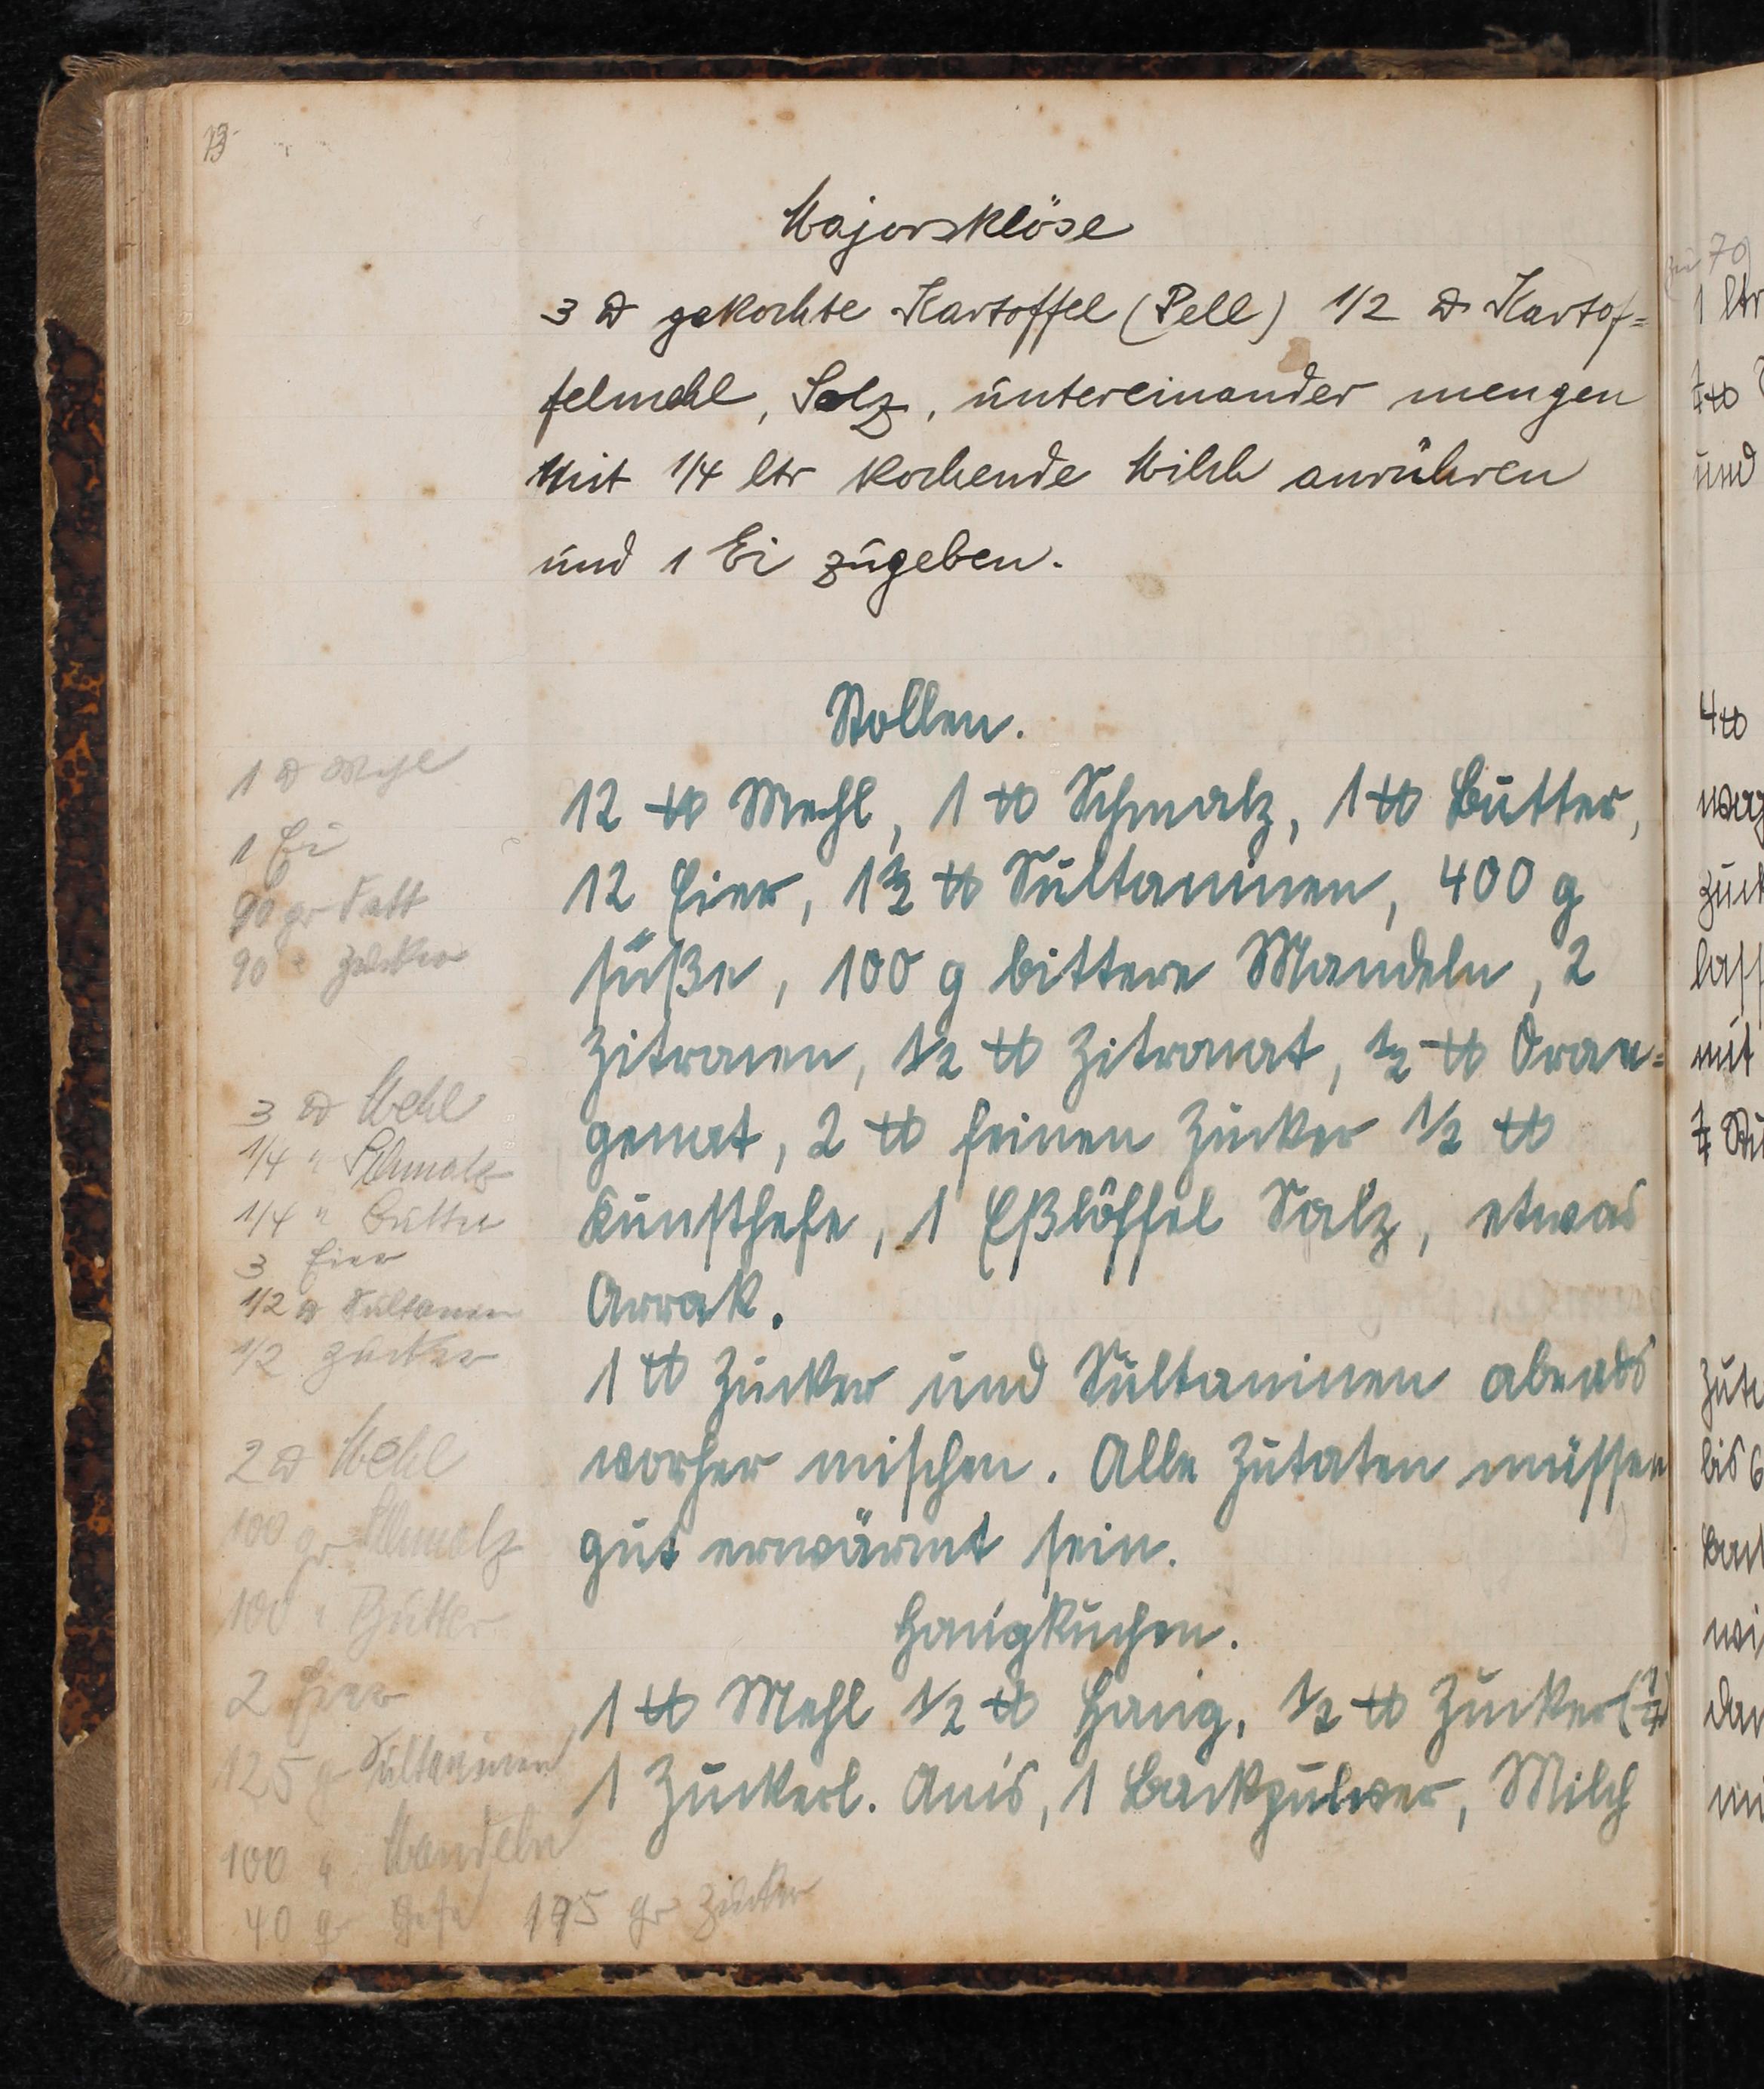 13
Majorsklöse
3 ℔ gekochte Kartoffel (Pell) 1/2 ℔ Kartof=
felmehl, Salz, untereinander mengen
Mit 1/4 ltr kochende Milch anrühren
und 1 Ei zugeben.
Stollen.
12 ℔ Mehl, 1 ℔ Schmalz, 1 ℔ Butter,
12 Eier, 1 1/2 ℔ Sultaninen, 400 g
süße, 100 g bittere Mandeln, 2
Zitronen, 1/2 ℔ Zitronat, 1/2 ℔ Oran=
genat, 2 ℔ feinen Zucker 1/2 ℔
Kunsthefe, 1 Eßlöffel Salz, etwas
Arrak.
1 ℔ Zucker und Sultaninen abends
vorher mischen. Alle Zutaten müssen
gut erwärmt sein.
Honigkuchen.
1 ℔ Mehl 1/2 ℔ Honig, 1/2 ℔ Zucker (1/4)
1 Zuckerl. Anis, 1 Backpulver, Milch
1 ℔ Mehl
1 Ei
90 gr Fett
90 " Zucker
3 ℔ Mehl
1/4 " Schmalz
1/4 " Butter
3 Eier
1/2 ℔ Sultaninen
1/2 Zucker
2 ℔ Mehl
100 gr Schmalz
100 " Butter
2 Eier
125 gr Sultaninen
100 " Mandeln
40 gr Hefe 175 gr Zucker
zu 70
1 ltr
und
4 ℔
mit
bis 6